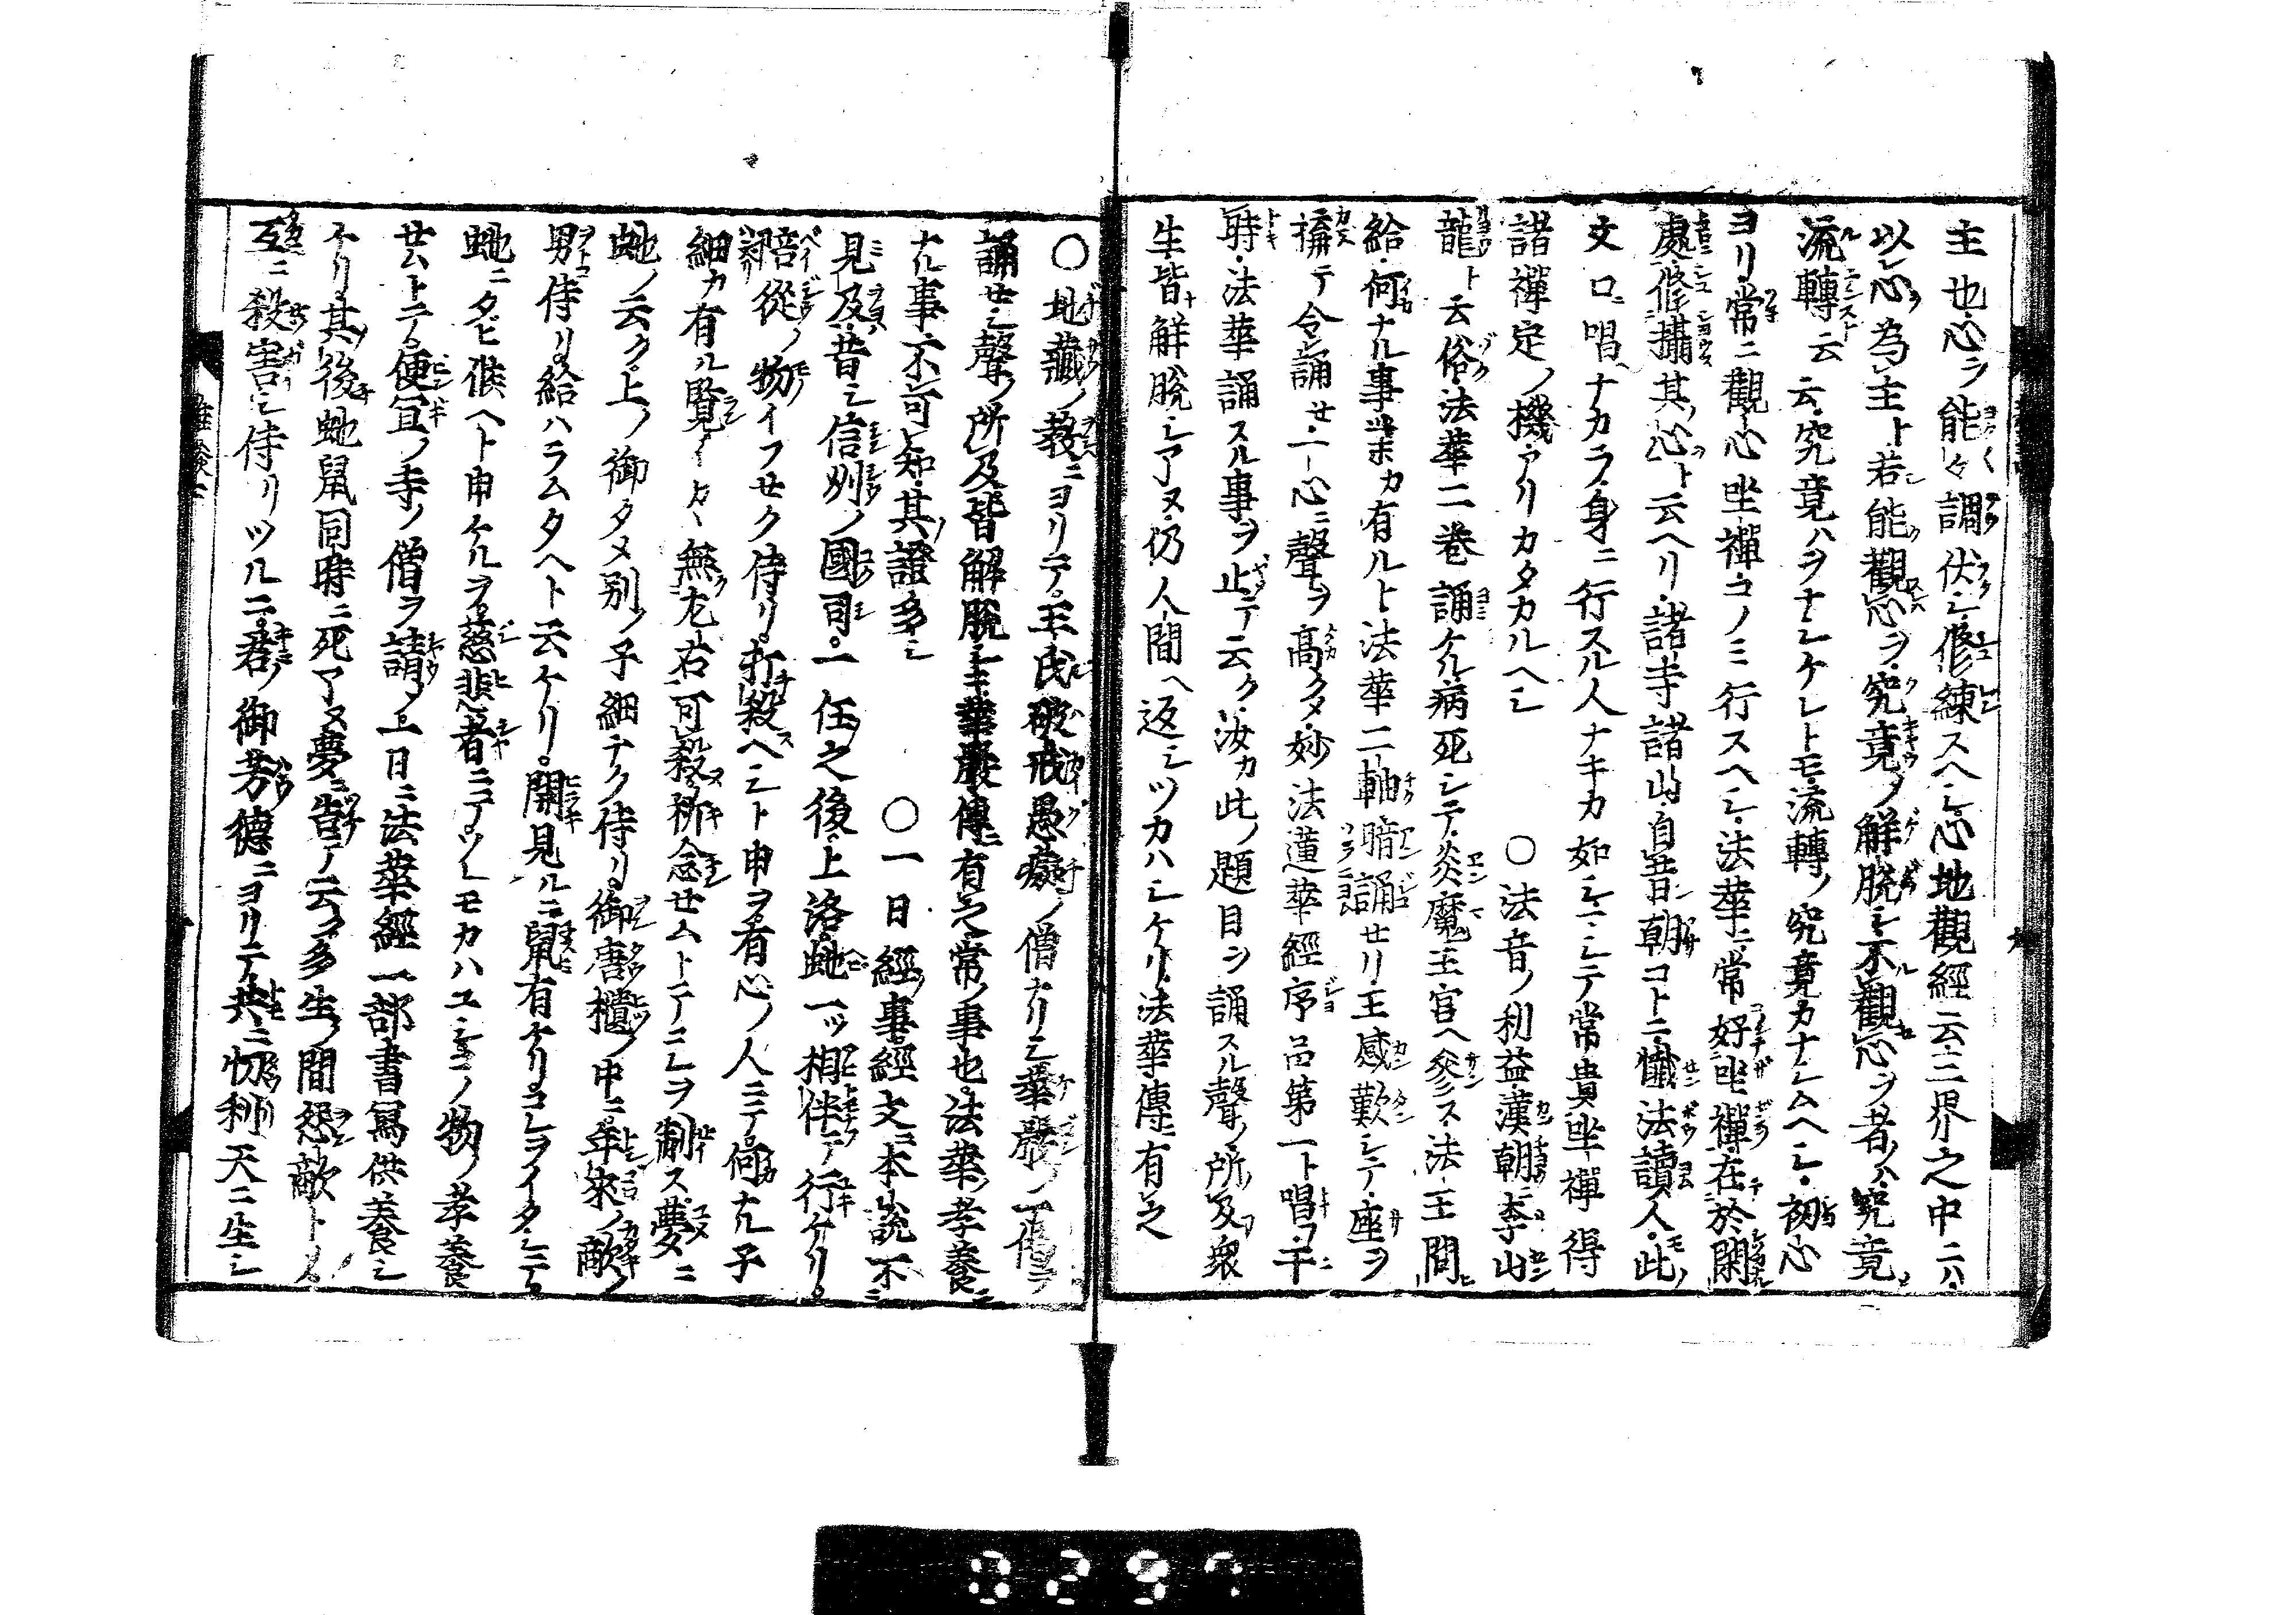 主也心ヲ能々調伏シ修練スヘシ心地觀經云三界之中ニハ
以心為主ト若能觀心ヲ究竟ノ解脱シ不觀心ヲ者ハ究竟
流轉云云究竟ハヲナシケレトモ流轉ノ究竟カナシムヘシ初心
ヨリ常ニ觀心坐禪コノミ行スヘシ法華ニ常好坐禪在於閑
處修攝其心ト云ヘリ諸寺諸山自昔朝コトニ懺法讀人此
文口ニ唱ナカラ身ニ行スル人ナキカ如シニシテ常貴坐禪得
諸禪定ノ機アリカタカルヘシ ○法音ノ利益漢朝ノ李山
龍ト云俗法華二巻誦ケル病死シテ炎魔王官ヘ參ス法王問
給何ナル事業カ有ルト法華二軸暗誦セリ王感歎シテ座ヲ
搆テ令誦セ一心ニ聲ヲ高クメ妙法蓮華經序品第一ト唱フニ
時法華誦スル事ヲ止テ云ク汝カ此ノ題目シ誦スル聲ノ所及衆
生皆解脱シ了ヌ仍人間ヘ返シツカハシケリ法華傳有之
○地藏ノ教ニヨリテ王氏破戒愚癡ノ僧ナリシ華嚴ノ一偈ヲ
誦セシ聲ノ所及皆解脱シキ華嚴傳ニ有之常ノ事也法華ノ孝養ニ
ナル事不可知其證多シ ○一日經ノ事經文ニ本説不
見及昔シ信州ノ國司一任之後上洛蛇一ツ相伴テ行ケリ
陪從ノ物イフセク侍リ打殺ヘシト申ヲ有心ノ人ニテ何ナル子
細カ有ル覽イカヽ無左右可殺祈念セムトテコレヲ制ス夢ニ
蛇ノ云ク上ノ御タメ別ノ子細ナク侍リ御唐櫃ノ中ニ年來ノ敵ノ
男侍リ給ハラムタヘト云ケリ開見ルニ鼠有ケリコレヲイタシテ
蛇ニタヒ候ヘト申ケルヲ慈悲者ニテツレモカハユシコノ物ノ孝養
セムトテ便宜ノ寺ノ僧ヲ請メ一日ニ法華經一部書寫供養シ
ケリ其後蛇鼠同時ニ死了ヌ夢ニ告テ云ク多生ノ間怨敵トメ
互ニ殺害シ侍リツルニ君ノ御芳德ニヨリテ共ニ忉利天ニ生シ